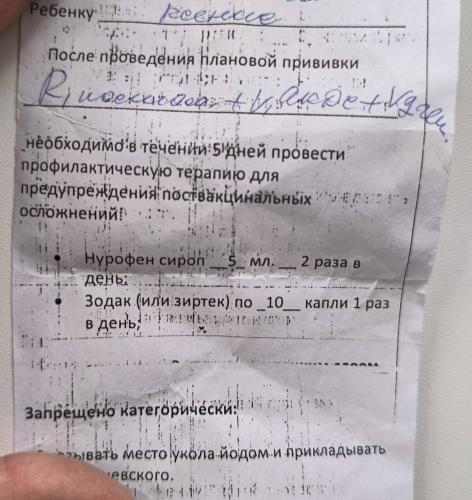 Ребенку
После проведения плановой прививки
необходимо в течении 5 дней провести
профилактическую терапию для
предупреждения поствакцинальных
осложнений:
• Нурофен сироп __5_ мл. ___ 2 раза в
день;
• Зодак (или зиртек) по _10__ капли 1 раз
в день;
Запрещено категорически:
место укола йодом и прикладывать